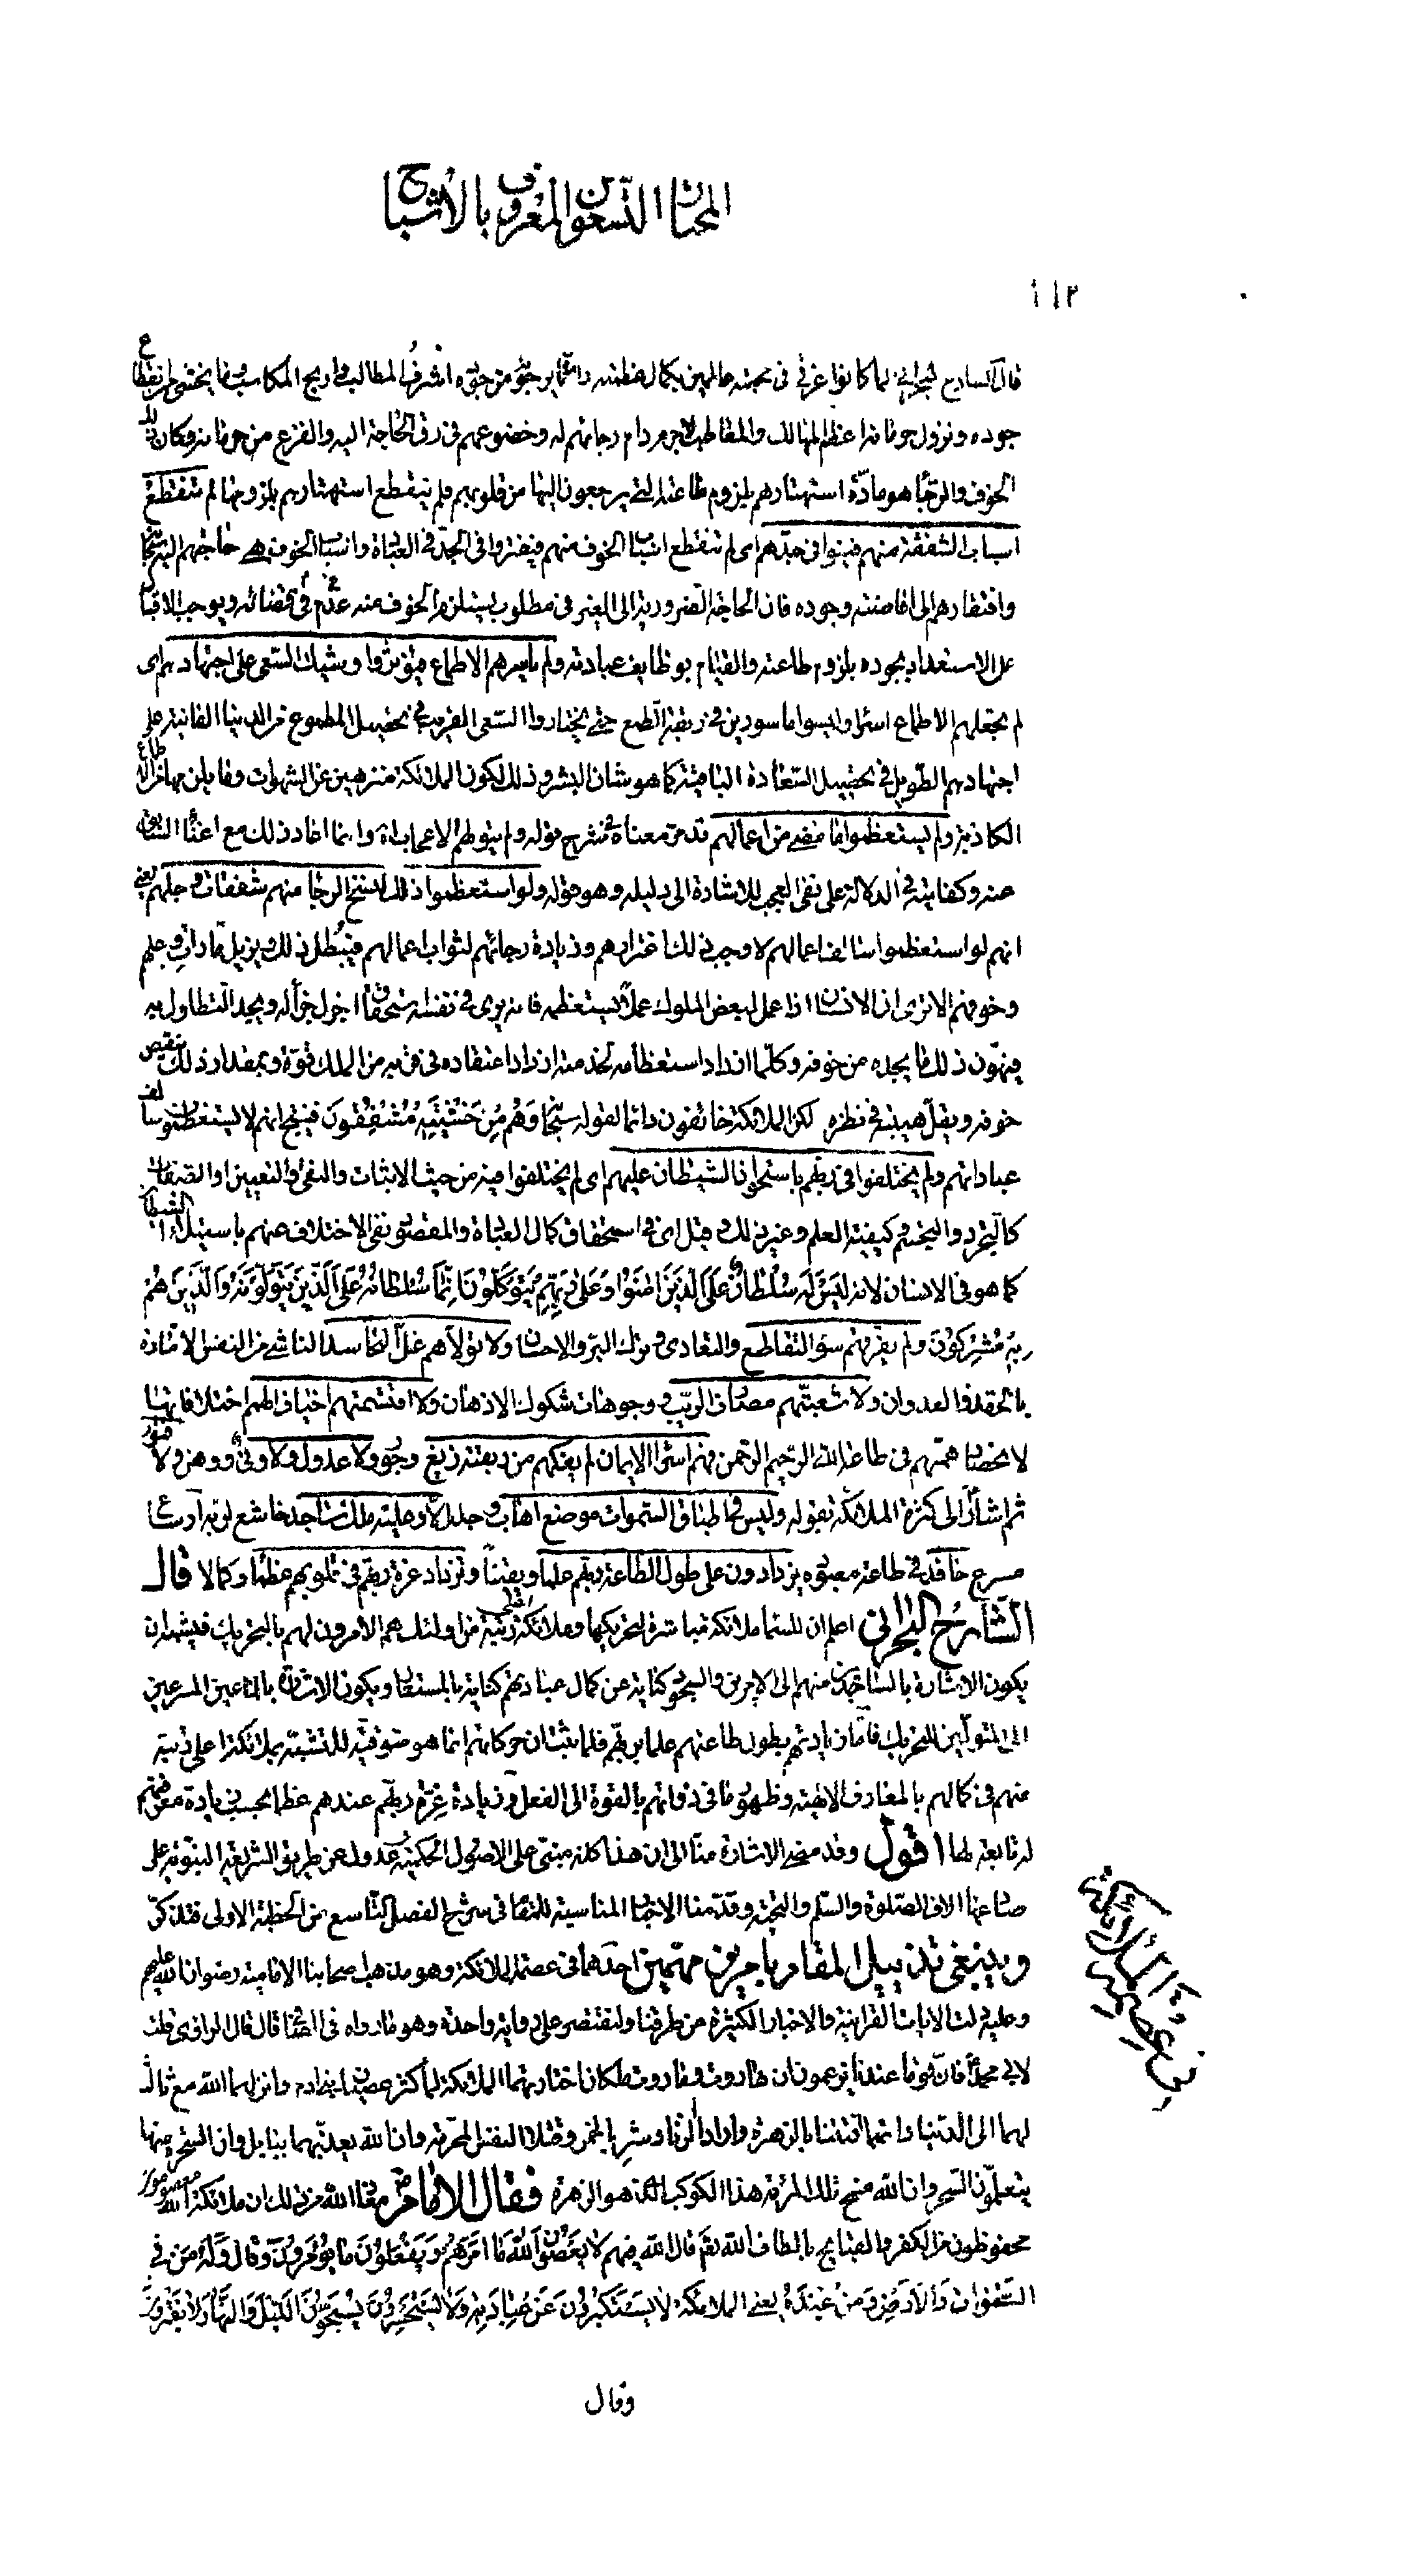 المختار التسعون المعروف بالأشباح
١١٢
قال الشارح البحراني لما كانوا غرقى في محبته عالمين بكمال عظمته وأن ما يرجونه من جوده أشرف المطالب وأربح المكاسب وما يخشى من انقطاع
جوده ونزول حرمانه أعظم المهالك والمعاطب لا جرم دام رجائهم له وخضوعهم في رق الحاجة إليه والفزع من حرمانه وكان ذلك
الخوف والرجاء هو مادة استهتارهم بلزوم طاعته التي يرجعون إليها من قلوبهم فلم ينقطع استهتارهم بلزومها لم تنقطع
أسباب الشفقة منهم فينوا في جدهم أي لم تنقطع أسباب الخوف منهم فيفتروا في الجد في العبادة وأسباب الخوف هي حاجتهم إليه سبحانه
وافتقارهم إلى إفاضته وجوده فان الحاجة الضرورية إلى الغير في مطلوب يستلزم الخوف منه عدم في قضائه ويوجب الاقبال
على الاستعداد بجوده بلزوم طاعته والقيام بوظايف عبادته ولم يأسرهم الاطماع فيؤثروا وشيك السعي على اجتهادهم أي
لم يجعلهم الاطماع اسراء وليسوا مأسورين في ربقة الطمع حتى يختاروا السعي القريب في تحصيل المطموع من الدنيا الفانية على
اجتهادهم الطويل في تحصيل السعادة الباقية كما هو شأن البشر وذلك لكون الملائكة منزهين عن الشهوات وما يلزمها من الاطماع
الكاذبة ولم يستعظموا ما مضى من أعمالهم قد مر معناه في شرح قوله ولم يتولهم الاعجاب اه وإنما أعاد ذلك مع اغناء السابق
عنه وكفايته في الدلالة على نفي العجب للاشارة إلى دليله وهو قوله ولو استعظموا ذلك لنسخ الرجاء منهم شفقات وجلهم يعني
انهم لو استعظموا سالف أعمالهم لأوجب ذلك اغترارهم وزيادة رجائهم لثواب أعمالهم فيبطل ذلك ويزيل تارات وجلهم
وخوفهم ألا ترى ان الانسان اذا عمل لبعض الملوك عملا يستعظمه فانه يرى في نفسه استحقاق اجزل جزاء له ويجد التطاول به
فيهون ذلك ما يجده من خوفه وكلما ازداد استعظامه لخدمته ازداد اعتقاده في قربه من الملك قوة وبمقدار ذلك ينقص
خوفه ويقل هيبته في نظره لكن الملائكة خائفون دائما لقوله سبحانه وَهُمْ مِنْ خَشْيَتِهِ مُشْفِقُونَ فينتج انهم لا يستعظمون سالف
عباداتهم ولم يختلفوا في ربهم باستحواذ الشيطان عليهم أي لم يختلفوا فيه من حيث الاثبات والنفي والتعيين أو الصفات
كالتجرد والتجسم كيفية العلم وغير ذلك وقيل أي في استحقاق كمال العبادة والمقصود نفي الاختلاف عنهم باستيلاء الشيطان
كما هو في الانسان لانه لَيْسَ لَهُ سُلْطَانٌ عَلَى الَّذِينَ آمَنُوا وَعَلَى رَبِّهِمْ يَتَوَكَّلُونَ إِنَّمَا سُلْطَانُهُ عَلَى الَّذِينَ يَتَوَلَّوْنَهُ وَالَّذِينَ هُمْ
بِهِ مُشْرِكُونَ ولم يفرقهم سوء التقاطع والتعادي وترك البر والاحسان ولا تولاهم غل التحاسد الناشئ من النفس الامارة
بالحقد والعدوان ولا تشعبتهم مصارف الريب ووجوهات شكوك الاذهان ولا اقتسمتهم أخياف الهمم اختلافاتها
لانحصار همتهم في طاعة الله الرحيم الرحمن فهم اسراء الايمان لم يفكهم من ربقته زيغ وجور ولا عدول ولا ونى ووهن ولا فتور
ثم أشار إلى كثرة الملائكة بقوله وليس في أطباق السموات موضع اهاب وجلد إلا وعليه ملك ساجد خاشع لربه أو ساع
مسرع حافد في طاعة معبوده يزدادون على طول الطاعة بربهم علما ويقينا وتزداد عزة ربهم في قلوبهم عظما وكمالا قال
الشارح البحراني اعلم ان للسماء ملائكة مباشرة لتحريكها وملائكة اعلى رتبة من اولئك هم الآمرون لهم بالتحريك فيشبه ان
يكون الاشارة بالساجدين منهم إلى الآمرين والسجود كناية عن كمال عبادتهم كناية بالمستعار ويكون الاشارة بالساعين المسرعين
إلى المتولين للتحريك فأما زيادتهم بطول طاعتهم علما بربهم فلما ثبت ان حركاتهم انما هو شوقية للتشبه بملائكة اعلى رتبة
منهم في كمالهم بالمعارف الالهية وظهور ما في ذواتهم بالقوة إلى الفعل وزيادة عزة ربهم عندهم عظما بحسب زيادة معرفتهم
له تابعة لها اقول وقد مضى الاشارة منا إلى ان هذا كله مبنى على الاصول الحكمية عدول عن طريق الشريعة النبوية على
صادعها الاف الصلوة والسلم والتحية وقد قدمنا الاخبار المناسبة للمقام في شرح الفصل التاسع من الخطبة الاولى فتذكر
وينبغي تذييل المقام بأمرين مهمين أحدهما في عصمة الملائكة وهو مذهب أصحابنا الامامية رضوان الله عليهم
وعليه دلت الآيات القرآنية والاخبار الكثيرة من طرقنا ولنقتصر على رواية واحدة وهو ما رواه في الصافي قال قال الراوي قلت
لأبي محمد فان قوما عندنا يزعمون ان هاروت وماروت ملكان اختارتهما الملائكة لما كثر عصيان بني ادم وأنزلهما الله مع ثالث
لهما إلى الدنيا وانهما افتتنا بالزهرة وأرادا الزنا وشربا الخمر وقتلا النفس المحرمة وان الله يعذبهما ببابل وان السحرة منهما
يتعلمون السحر وان الله مسخ تلك المرأة هذا الكوكب الذي هو الزهرة فقال الامام معاذ الله من ذلك ان ملائكة الله معصومون
محفوظون من الكفر والقبايح بألطاف الله تعالى قال الله فيهم لا يَعْصُونَ اللَّهَ مَا أَمَرَهُمْ وَيَفْعَلُونَ مَا يُؤْمَرُونَ وقال وَلَهُ مَنْ فِي
السَّمَوَاتِ وَالْأَرْضِ وَمَنْ عِنْدَهُ يعني الملائكة لا يَسْتَكْبِرُونَ عَنْ عِبَادَتِهِ وَلَا يَسْتَحْسِرُونَ يُسَبِّحُونَ اللَّيْلَ وَالنَّهَارَ لَا يَفْتُرُونَ
وقال
في عصمة الملائكة